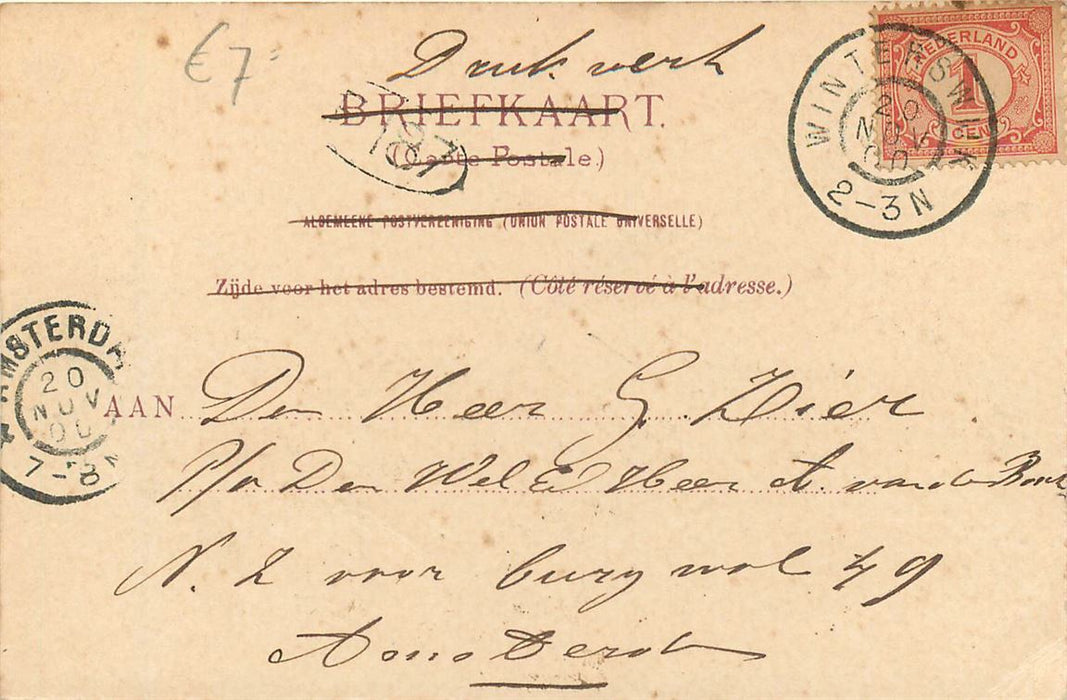 €7-
Drukwerk
NEDERLAND
1
CENT
WINTERSWIJK
20
NOV
00
2-3N
BRIEFKAART.
187
(Carte Postale.)
ALGEMEENE POSTVEREENIGING (UNION POSTALE UNIVERSELLE)
Zijde voor het adres bestemd. (Côté réservé à l'adresse.)
AMSTERDA
20
NOV
00
7-8N
AAN Den Heer G. Zier
P/a Den Wel Ed Heer A. van de
N. Z voorburgwal 49
Amsterd